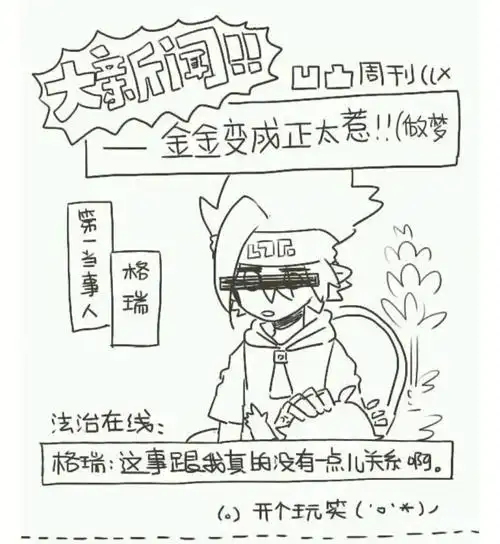 大新闻!!
凹凸周刊((×
一 金金变成正太惹!!(做梦
第一当事人
格瑞
法治在线:
格瑞:这事跟我真的没有一点儿关系啊。
(。) 开个玩笑 ('o'*)ノ